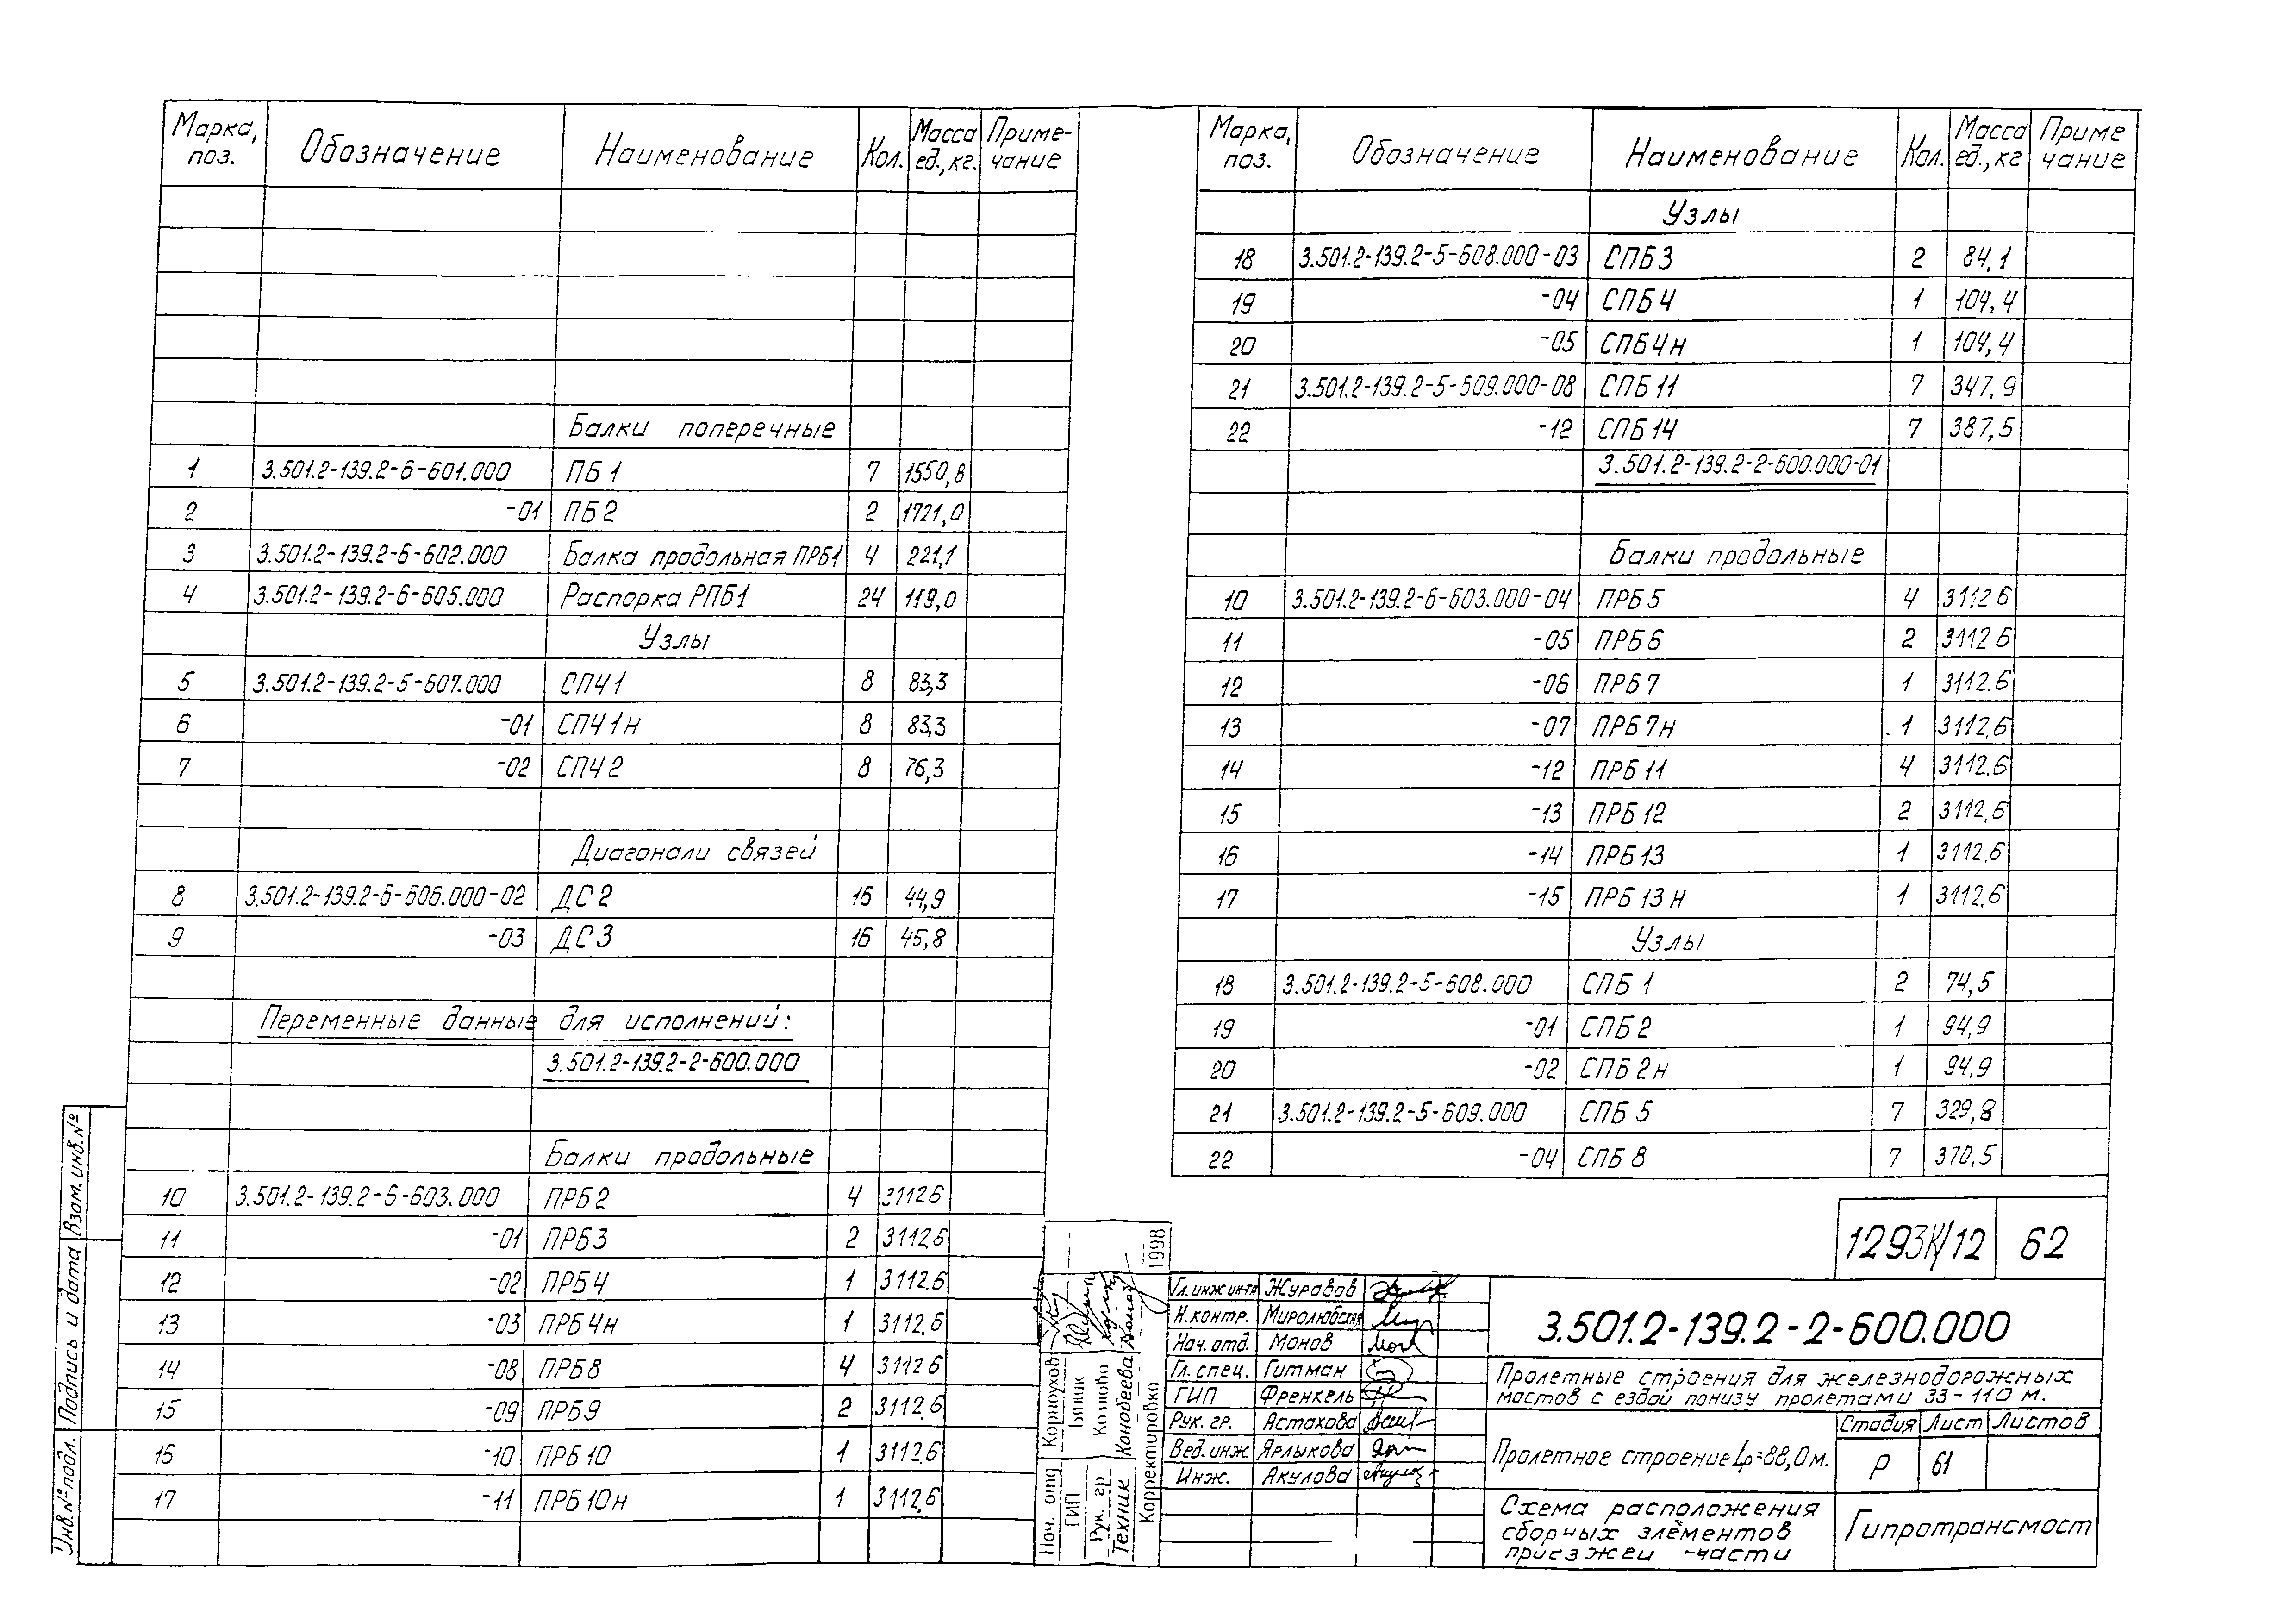 Марка, поз. Обозначение Наименование Кол. Масса ед., кг. Приме-чание
Балки поперечные
1 3.501.2-139.2-6-601.000 ПБ 1 7 1550,8
2 -01 ПБ 2 2 1721,0
3 3.501.2-139.2-6-602.000 Балка продольная ПРБ1 4 221,1
4 3.501.2-139.2-6-605.000 Распорка РПБ1 24 119,0
Узлы
5 3.501.2-139.2-5-607.000 СПЧ 1 8 83,3
6 -01 СПЧ 1н 8 83,3
7 -02 СПЧ 2 8 76,3
Диагонали связей
8 3.501.2-139.2-6-606.000-02 ДС 2 16 44,9
9 -03 ДС 3 16 45,8
Переменные данные для исполнений:
3.501.2-139.2-2-600.000
Балки продольные
10 3.501.2-139.2-6-603.000 ПРБ 2 4 3112.6
11 -01 ПРБ 3 2 3112.6
12 -02 ПРБ 4 1 3112.6
13 -03 ПРБ 4н 1 3112.6
14 -08 ПРБ 8 4 3112 6
15 -09 ПРБ 9 2 3112.6
16 -10 ПРБ 10 1 3112.6
17 -11 ПРБ 10н 1 3112,6
Марка, поз. Обозначение Наименование Кол. Масса ед., кг Приме чание
Узлы
18 3.501.2-139.2-5-608.000-03 СПБ 3 2 84,1
19 -04 СПБ 4 1 104,4
20 -05 СПБ 4н 1 104,4
21 3.501.2-139.2-5-609.000-08 СПБ 11 7 347,9
22 -12 СПБ 14 7 387,5
3.501.2-139.2-2-600.000-01
Балки продольные
10 3.501.2-139.2-6-603.000-04 ПРБ 5 4 3112 6
11 -05 ПРБ 6 2 3112 6
12 -06 ПРБ 7 1 3112.6
13 -07 ПРБ 7н 1 3112,6
14 -12 ПРБ 11 4 3112.6
15 -13 ПРБ 12 2 3112,6
16 -14 ПРБ 13 1 3112,6
17 -15 ПРБ 13 н 1 3112,6
Узлы
18 3.501.2-139.2-5-608.000 СПБ 1 2 74,5
19 -01 СПБ 2 1 94,9
20 -02 СПБ 2н 1 94,9
21 3.501.2-139.2-5-609.000 СПБ 5 7 329,8
22 -04 СПБ 8 7 370,5
1293К/12 62
Гл. инж ин-та Журавов
Н.контр. Миролюбская
Нач. отд. Монов
Гл. спец. Гитман
ГИП Френкель
Рук. гр. Астахова
Вед. инж Ярлыкова
Инж. Акулова
3.501.2-139.2-2-600.000
Пролетные строения для железнодорожных
мостов с ездой понизу пролетами 33-110 м.
Пролетное строение Lр=88,0м.
Стадия Лист Листов
Р 61
Схема расположения
сборных элементов
приезжей части
Гипротрансмост
Нач. отд Корноухов
ГИП
Рук. гр Козлова
Техник Конобеева
Корректировка 1998
Инв.№ подл. Подпись и дата Взам. инв.№